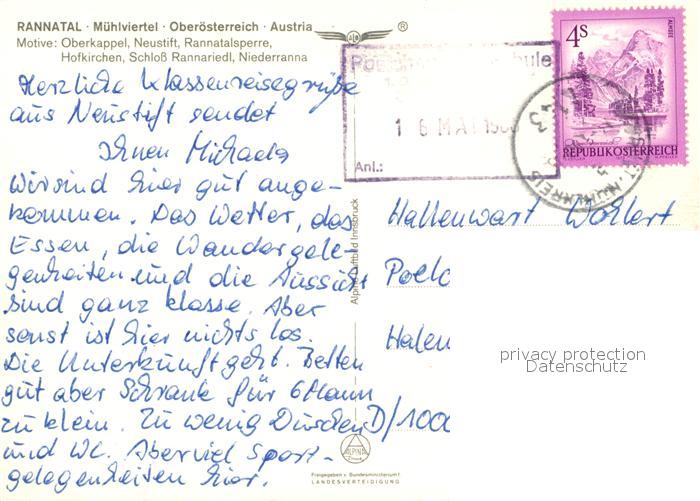 RANNATAL · Mühlviertel · Oberösterreich · Austria
Motive: Oberkappel, Neustift, Rannatalsperre,
Hofkirchen, Schloß Rannariedl, Niederranna
®
4s
ALMSEE
REPUBLIK ÖSTERREICH
16 MAI
Anl.:
Herzliche Klassenreisegrüße
aus Neustift sendet
Ihnen Michaela
Wir sind hier gut ange-
kommen. Das Wetter, das
Essen, die Wandergele-
genheiten und die Aussicht
sind ganz klasse. Aber
sonst ist hier nichts los.
Die Unterkunft geht. Betten
gut aber Schrank für 6 Mann
zu klein. Zu wenig Duschen
und WC. Aber viel Sport-
gelegenheiten hier.
Alpine Luftbild Innsbruck
Hallenwart Wohlert
Poelc
Halen
D/100
privacy protection
Datenschutz
ALPINE
Freigegeben v. Bundesministerium f.
LANDESVERTEIDIGUNG